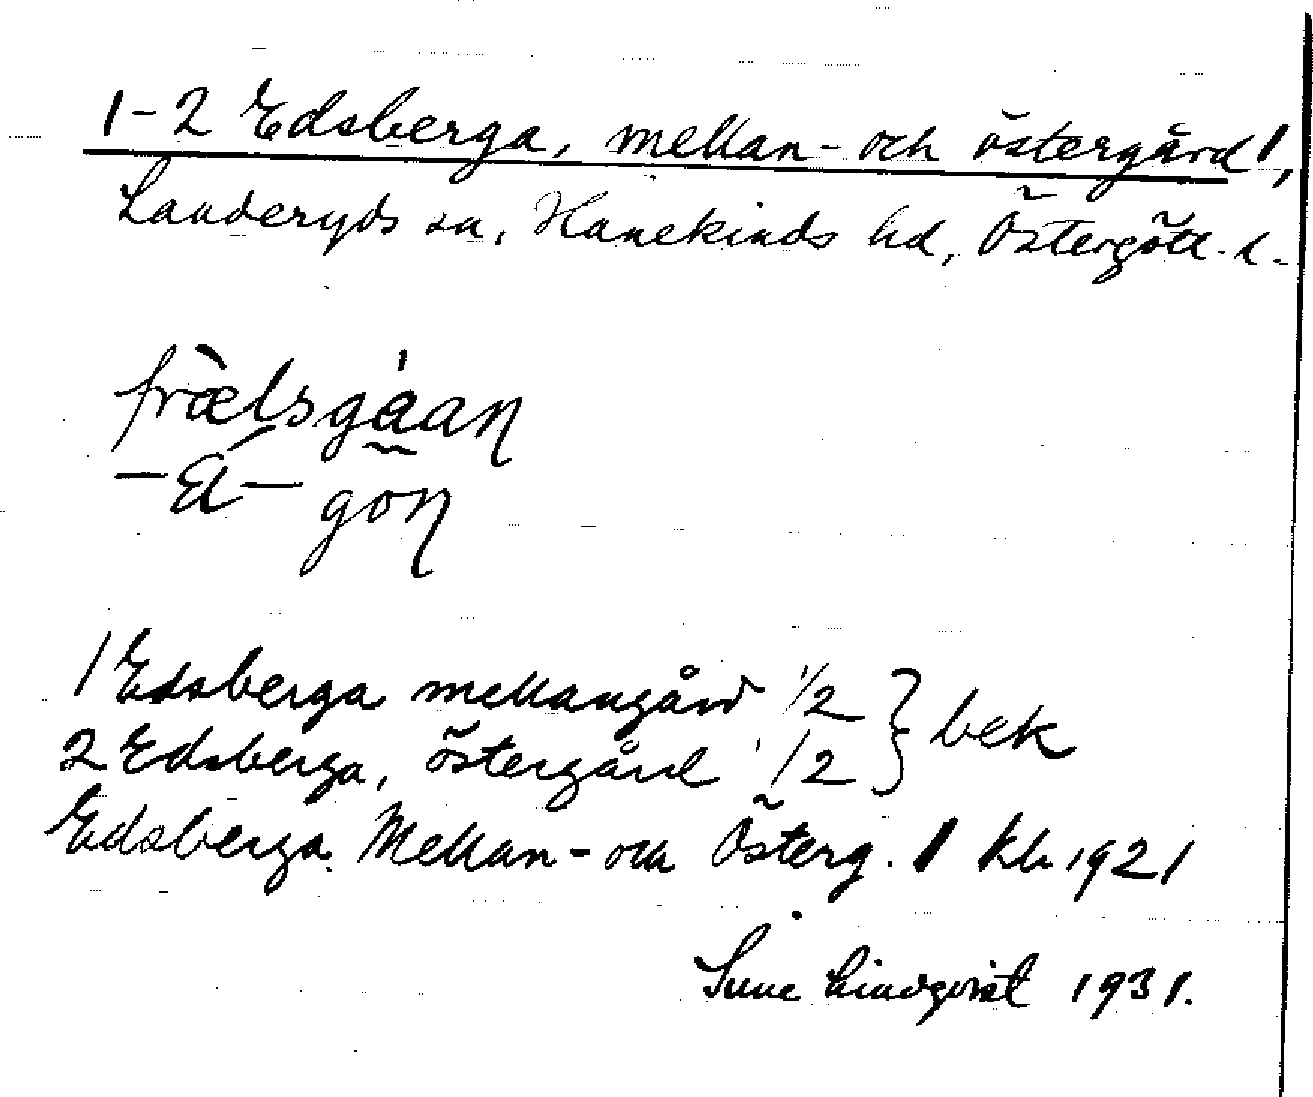 1-2 Edsberga, mellan- och östergård 1,
Landeryds sn, Hanekinds hd, Östergötl. l.
frǽlsgáan
-a- gon
1 Edsberga mellangård 1/2 } bek
2 Edsberga, östergård 1/2
Edsberga Mellan- och Österg. 1 kb 1921
Sune Lindqvist 1931.